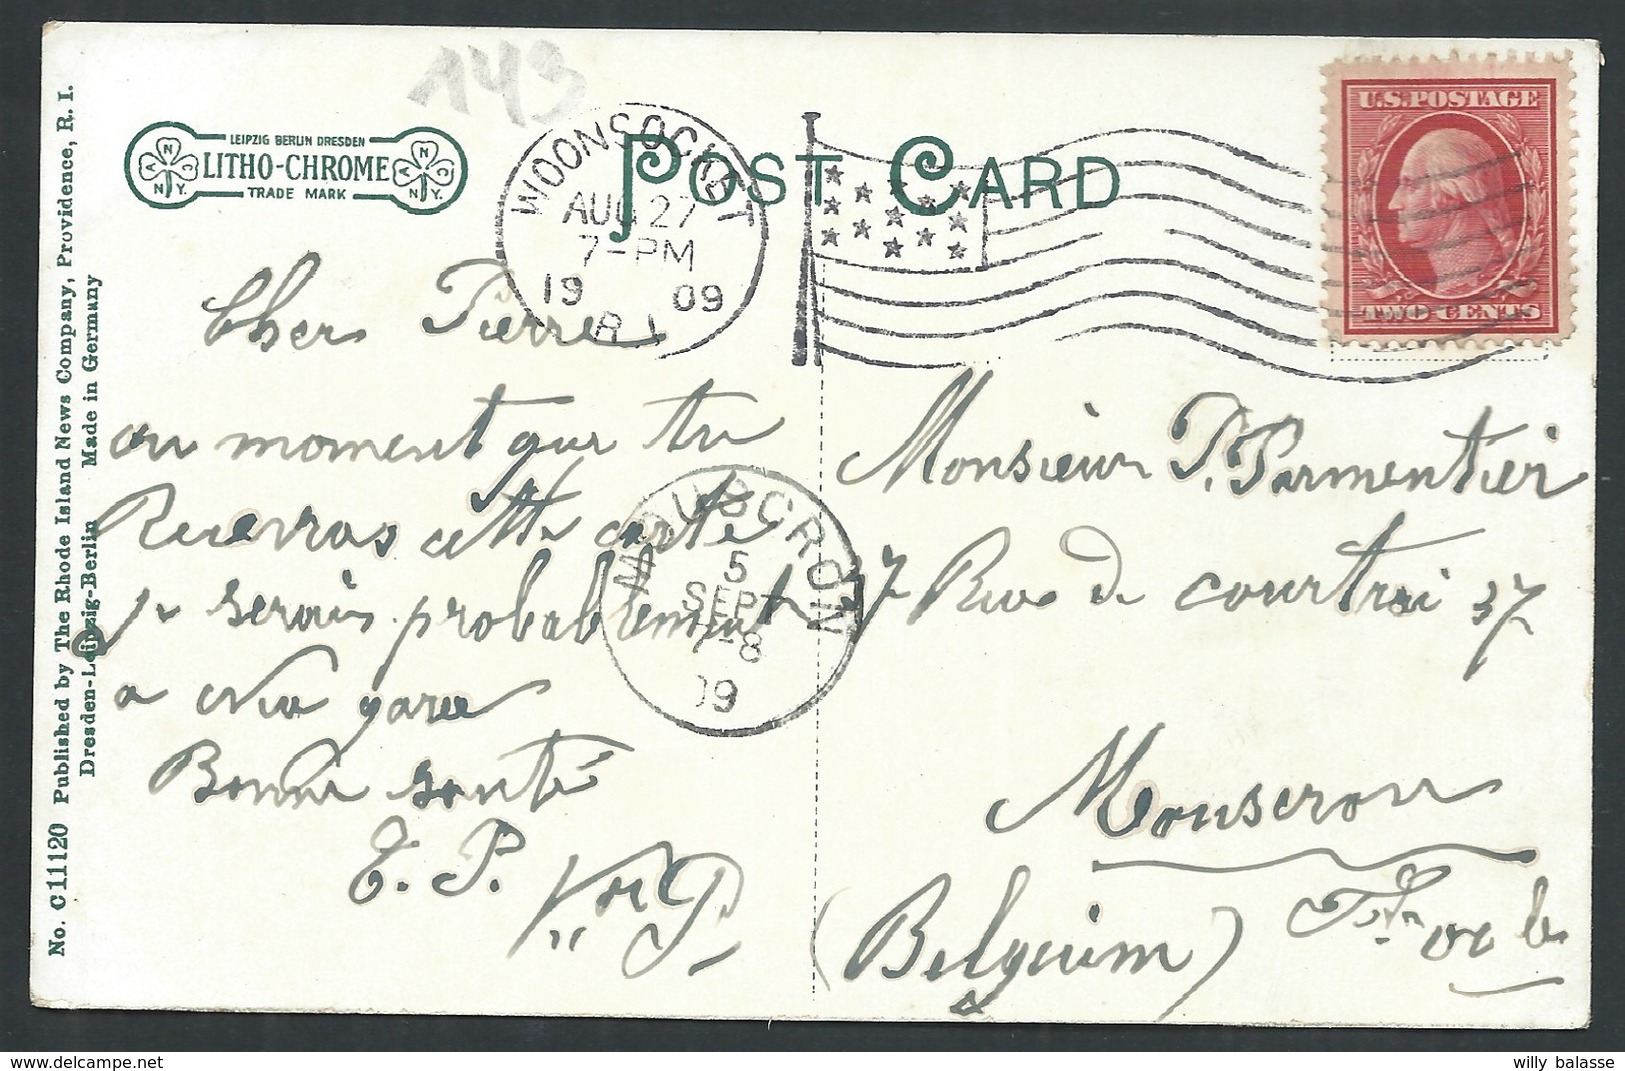 143
LEIPZIG BERLIN DRESDEN
LITHO-CHROME
TRADE MARK
ANCNY.
ANCNY.
POST CARD
WOONSOCKET
AUG 27
7-PM
19 09
R.I.
U.S. POSTAGE
TWO CENTS
No. C11120 Published by The Rhode Island News Company, Providence, R. I.
Dresden-Leipzig-Berlin Made in Germany
Cher Pierre
au moment que tu
Recevras cette carte
je serais probablement
a
Bonne santé
E. P.
MOUSCRON
5
SEPT
7-8
09
Monsieur P. Parmentier
37 Rue de courtrai 37
Mouscron
(Belgium)
willy balasse